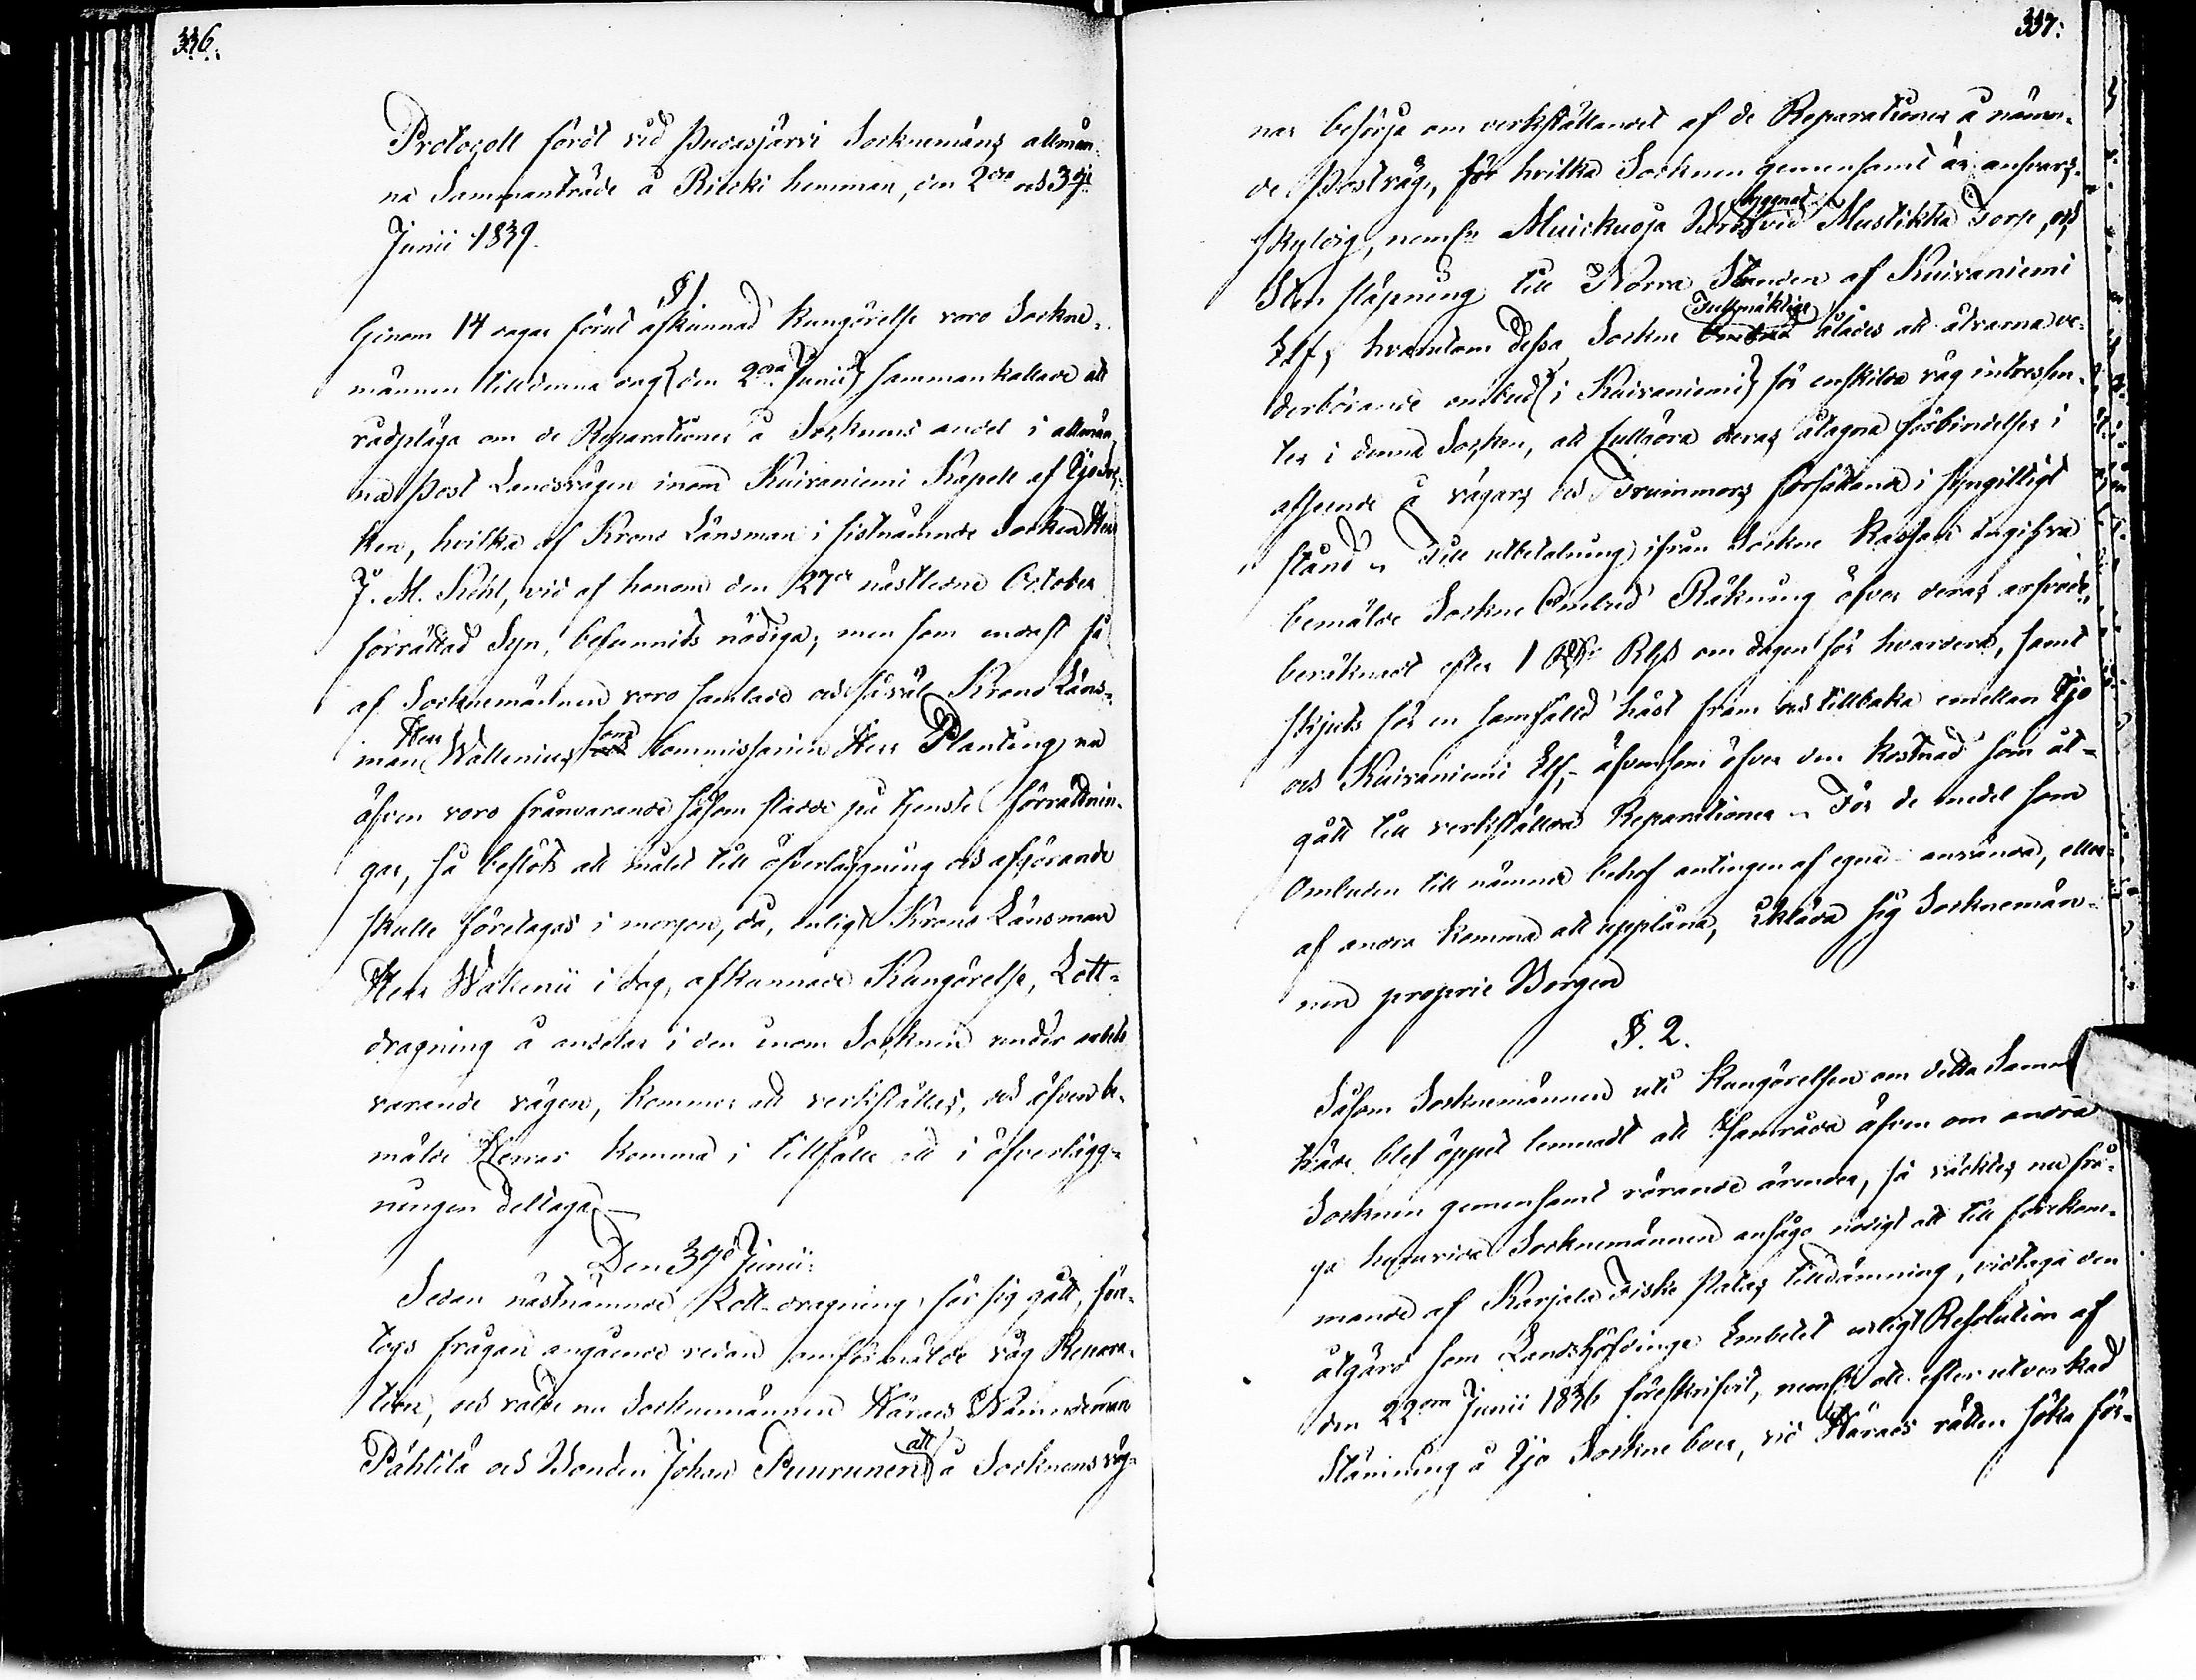 336.
Protocoll fördt vid Pudasjärvi Socknemäns allmän-
na Sammanträde å Riekki hemman, den 2dra och 3dje
Junii 1839.
§ 1.
Genom 14 dagar förut afkunnad Kungörelse voro Sockne-
männen till denna dag (den 2dra Junii) sammankallade att
rådpläga om de Reparationer å Socknens andel i allmän-
na Post Landsvägen inom Kuivaniemi Kapell af Ijo Soc-
ken, hvilka af Krono Länsman i sistnämnde Socken Herr
J. M. Kehl, vid af honom den 27de nästledne October
förrättad Syn, befunnits nödiga; men som endast få
af Socknemännen voro samlade och såväl Krono Läns-
man Herr Wallenius som Commissarien Herr Planting nu
äfven voro frånvarande såsom stadde på tjenste förrättnin-
gar, så beslöts att målet till öfverläggning och afgörande
skulle företagas i morgon, då, enligt Krono Länsman
Herr Wallenii i dag, afkunnade Kungörelse, Lott-
dragning å andelar i den inom Socknen under arbete
varande vägen, kommer att verkställas, och äfven be-
mälde Herrar komma i tillfälle att i öfverlägg-
ningen deltaga.—
Den 3dje Junii.
Sedan nästnämnde Lott-dragning för sig gått, före-
togs frågan angående redan omförmälde väg Repara-
tion, och valde nu Socknemännen Härads Nämndeman
Pähtilä och Bonden Johan Puurunen att å Socknens väg-
337.
nar besörja om verkställandet af de Reparationer å nämn-
de Postväg, för hvilka Socknen gemensamt är ansvars-
skyldig, nemln Muickuoja Bro byggnad vid Mustikka Torp, och
Sten släpning till Norra Stranden af Kuivaniemi
Elf; hvarutom dessa Sockne Fullmäktige ålades att åvarna ve-
derbörande ombud (i Kuivaniemi) för enskilda väg intressen-
ter i denna Socken, att fullgöra deras åtagna förbindelser i
afseende å vägars och Trummors försättande i syngilligt
stånd. Till utbetalning ifrån Sockne Kassan ingifva
bemälde Sockne Ombud Räkning öfver deras arfvode,
beräknadt efter 1 Rub om dagen för hvardera, samt
skjuts för en samfälld häst fram och tillbaka emellan Ijo
och Kuivaniemi Elf, äfvensom öfver den kostnad som åt-
gått till verkställda Reparationer. För de medel som
Ombuden till nämnde behof antingen af egna använda, eller
af andra komma att uppläna, ikläda sig Socknemän-
nen proprie Borgen
§. 2.
Såsom Socknemännen uti Kungörelsen om detta Samman-
träde blef öppet lemnadt att samråda äfven om andra
Socknen gemensamt rörande ärender, så väcktes nu frå-
ga huruvida Socknemännen ansågo nödigt att till förekom-
mande af Karjala Fiske patas tilldämning, vidtaga den
åtgärd som Landshöfdinge Embetet enligt Resolution af
den 22dra Junii 1836 föreskrifvit, nemln att efter utverkad
Stämning å Ijo Sockne boer, vid Härads rätten söka för-